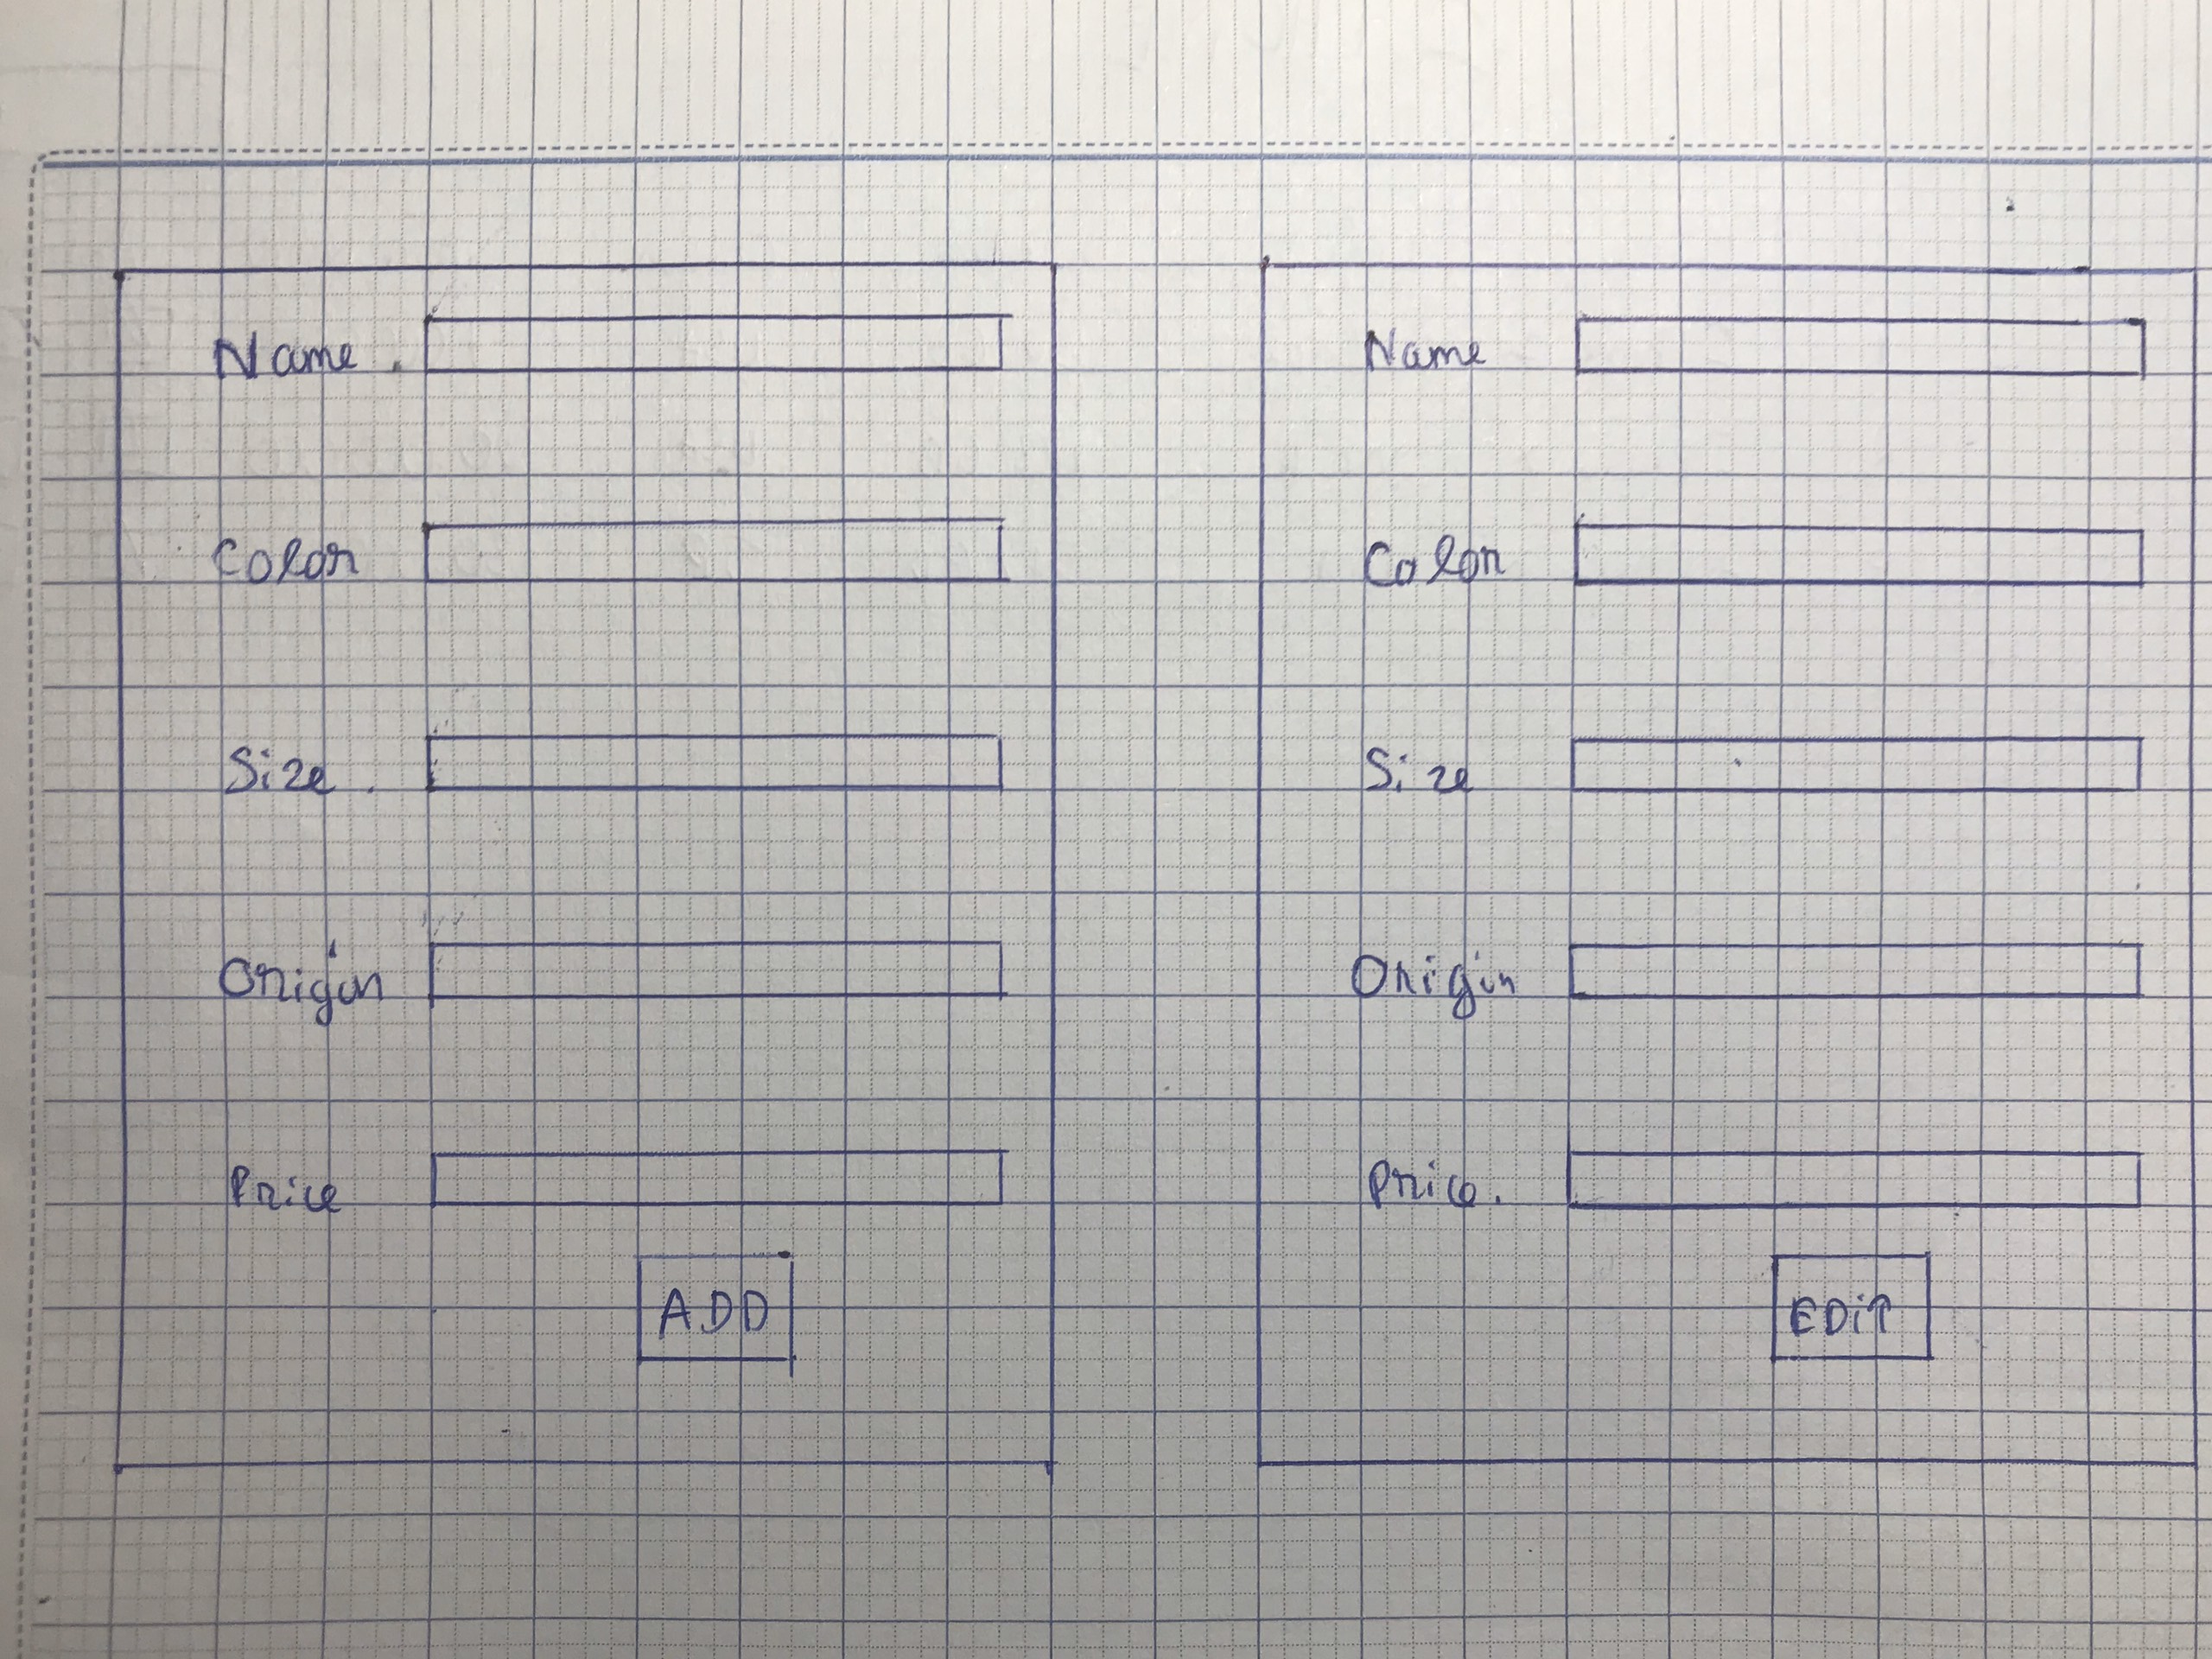 Name
Color
Size
Origin
Price
ADD
Name
Color
Size
Origin
Price.
EDiT